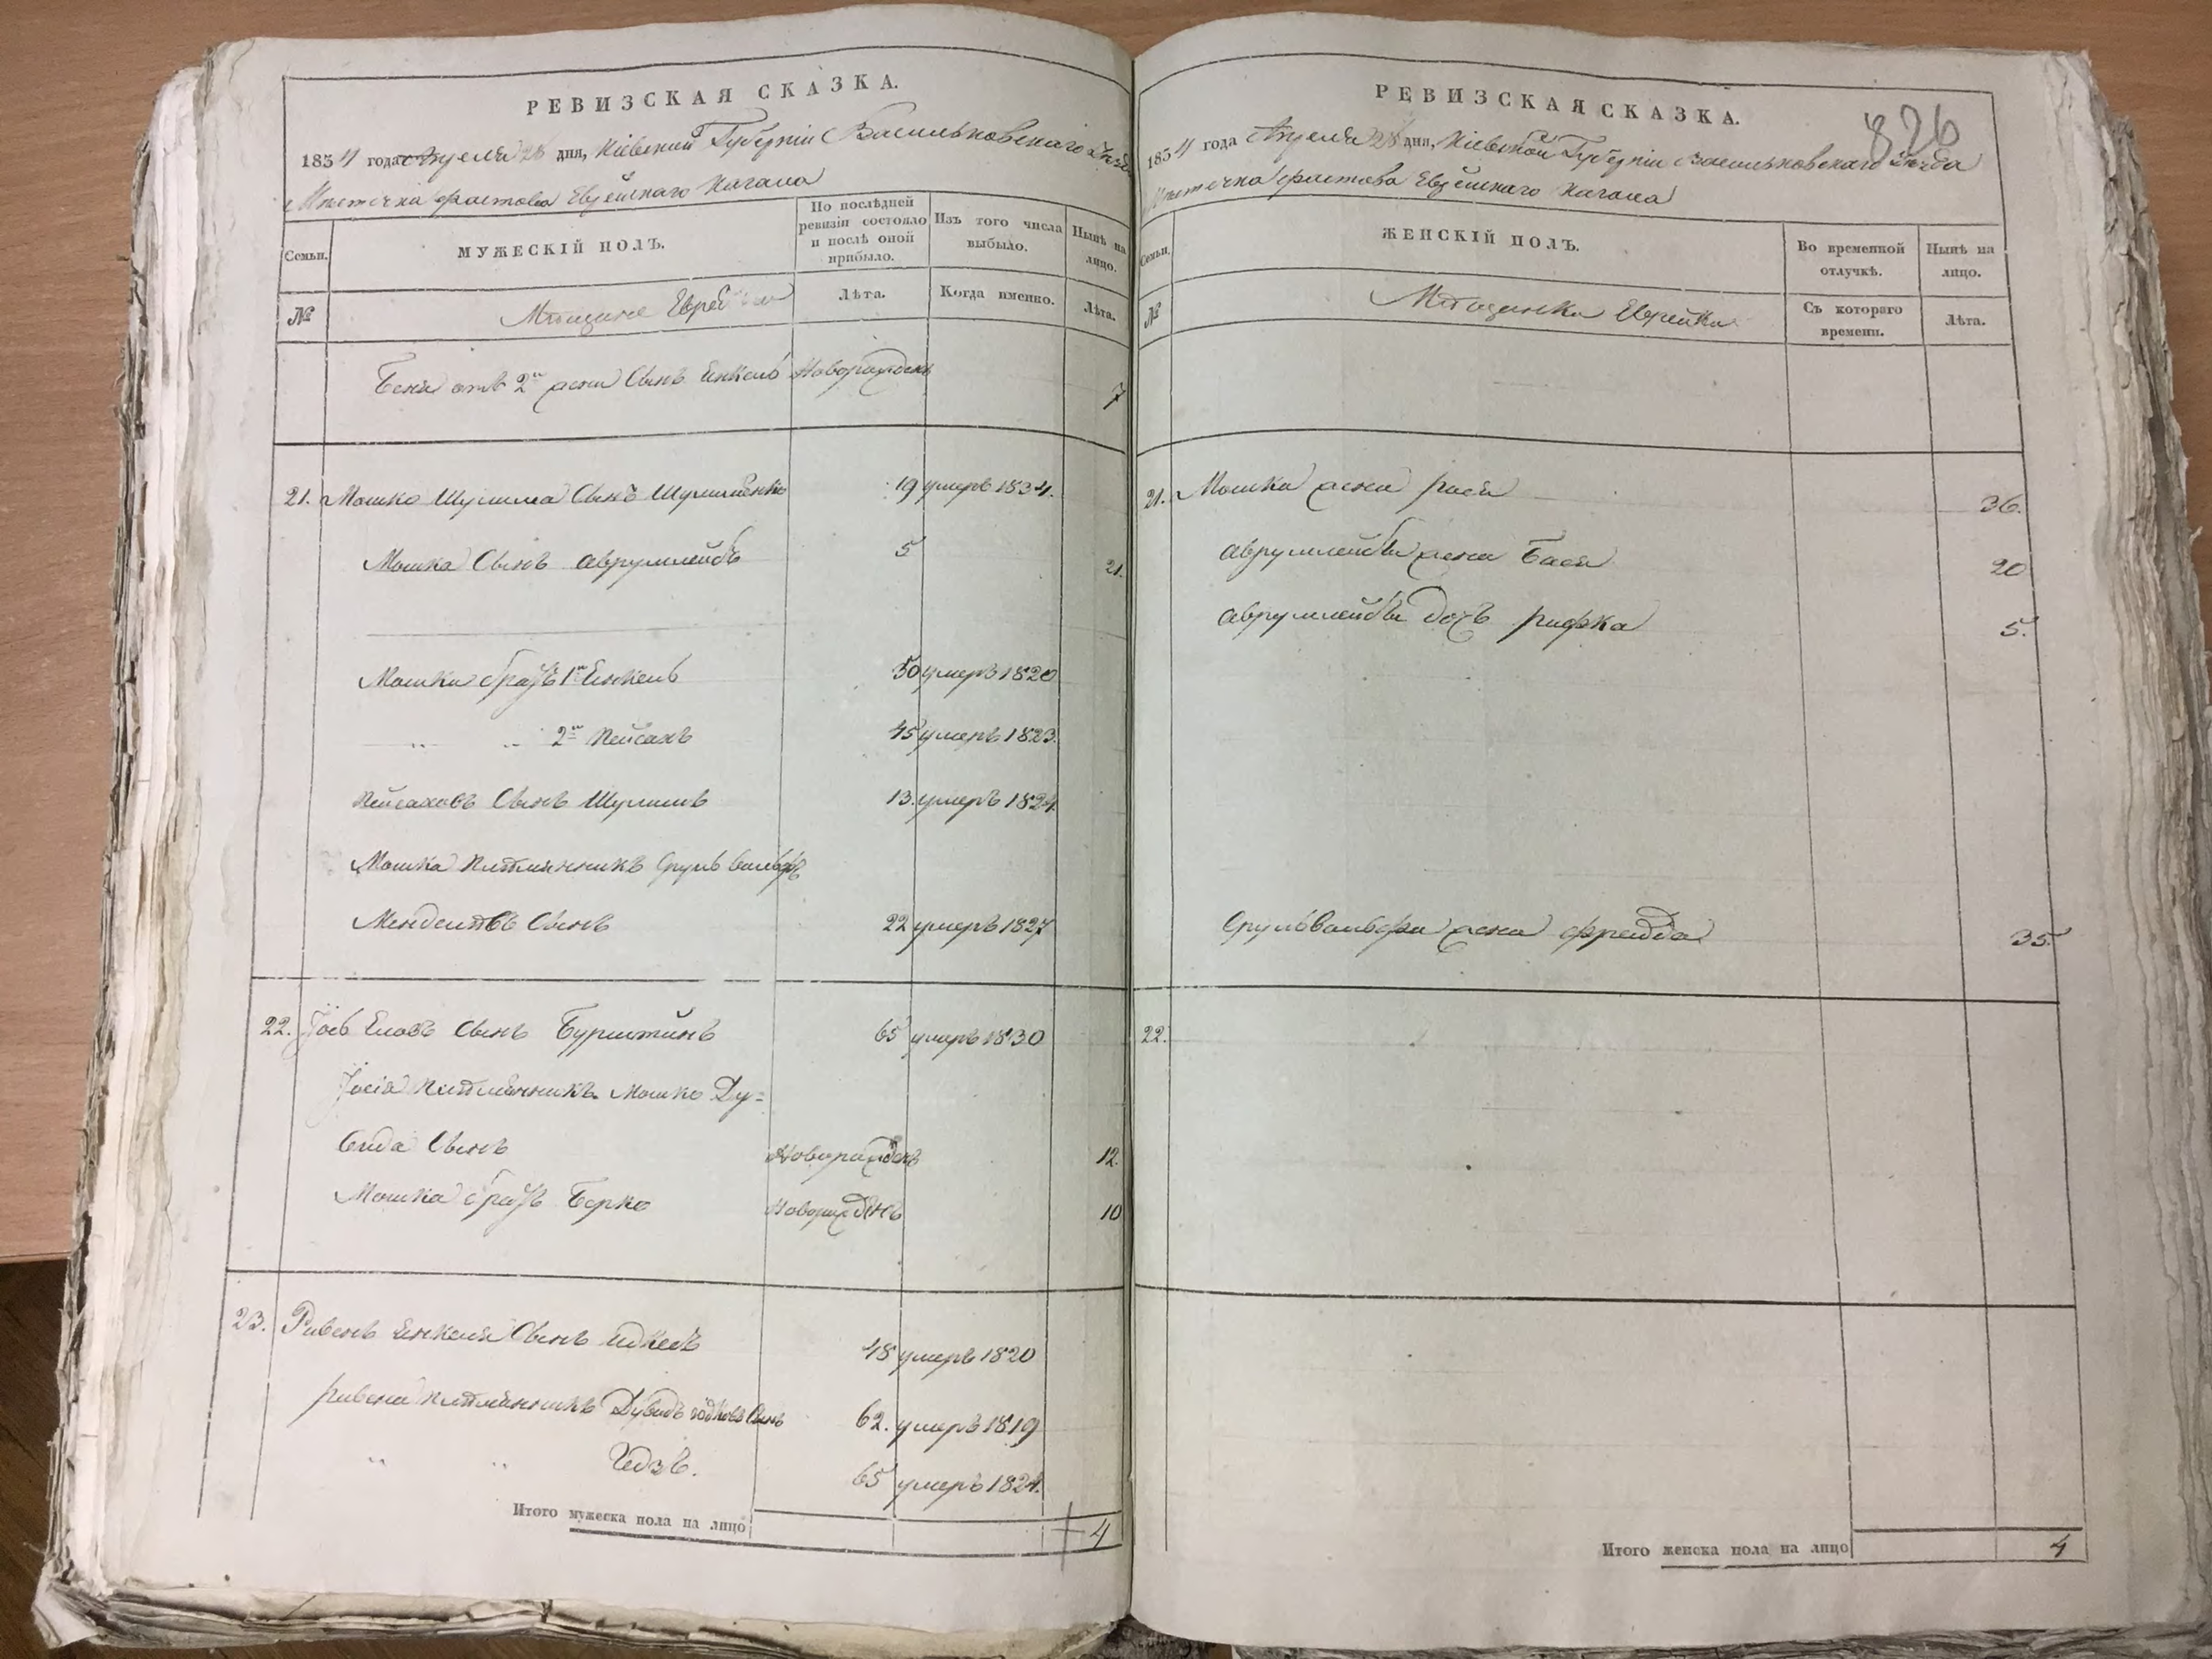 РЕВИЗСКАЯ СКАЗКА.
1834 года Апреля 28 дня, Кіевской Губерніи Васильковскаго Уезда
Местечка Фастова Еврейскаго Кагала
Семьи.
МУЖЕСКІЙ ПОЛЪ.
По послѣдней ревизіи состояло и послѣ оной прибыло.
Изъ того числа выбыло.
Нынѣ на лицо.
№
Мещане Евреи
Лѣта.
Когда именно.
Лѣта.
Бени отъ 2й жены Сынъ Янкель Новорожденъ 7
21. Мошко Шулима Сынъ Шулимѣнко 19 умеръ 1834.
Мошка Сынъ Аврумлейбъ 5 21.
Мошки братъ 1й Янкель 50 умеръ 1820
" " 2й Пейсахъ 45 умеръ 1823.
Пейсаховъ Сынъ Шулимъ 13. умеръ 1824.
Мошка племянникъ Сруль Вольфъ
Менделѣвъ Сынъ 22 умеръ 1827
22. Іось Еловъ Сынъ Бурштинъ 65 умеръ 1830
Іосія племянникъ Мошко Ду=
вида Сынъ Новорожденъ 12.
Мошка братъ Берко Новорожденъ 10
23. Рувенъ Янкеля Сынъ 48 умеръ 1820
Рувена племянникъ Дувидъ Сынъ 62. умеръ 1819
" " 65 умеръ 1824.
Итого мужеска пола на лицо 4
826
РЕВИЗСКАЯ СКАЗКА.
1834 года Апреля 28 дня, Кіевской Губерніи Васильковскаго Уезда
Местечка Фастова Еврейскаго Кагала
Семьи.
ЖЕНСКІЙ ПОЛЪ.
Во временной отлучкѣ.
Нынѣ на лицо.
№
Мещанки Еврейки
Съ котораго времени.
Лѣта.
21. Мошка жена Рася 36.
Аврумлейбы жена Бася 20
Аврумлейбы дочь Рифка 5.
Срульвольфа жена Фрейда 35.
22.
Итого женска пола на лицо 4